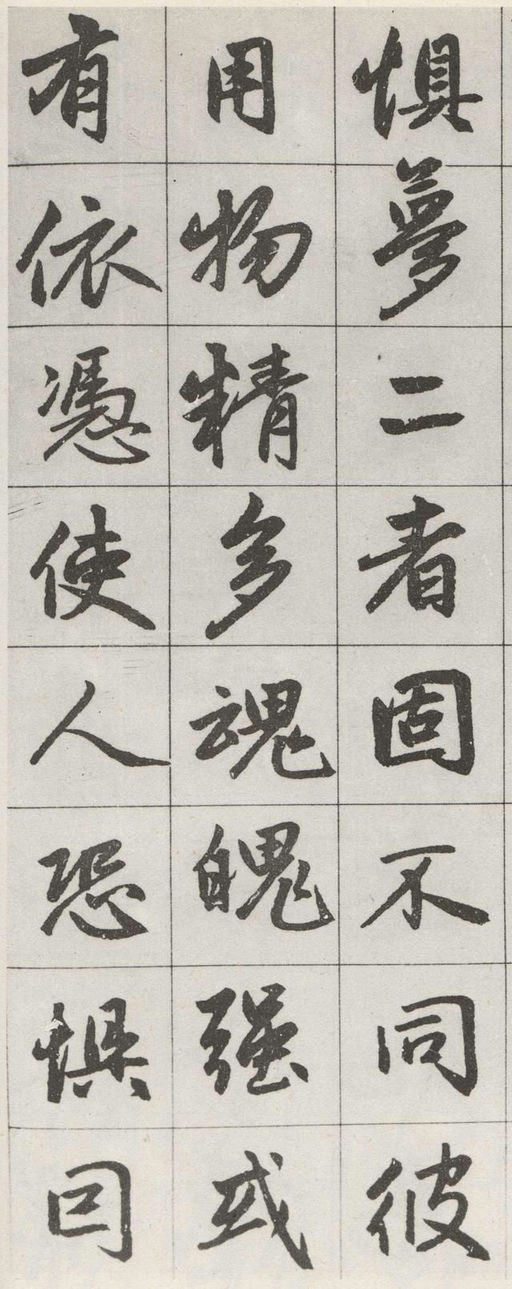 惧夢二者固不同彼
用物精多魂魄强或
有依憑使人恐惧囙